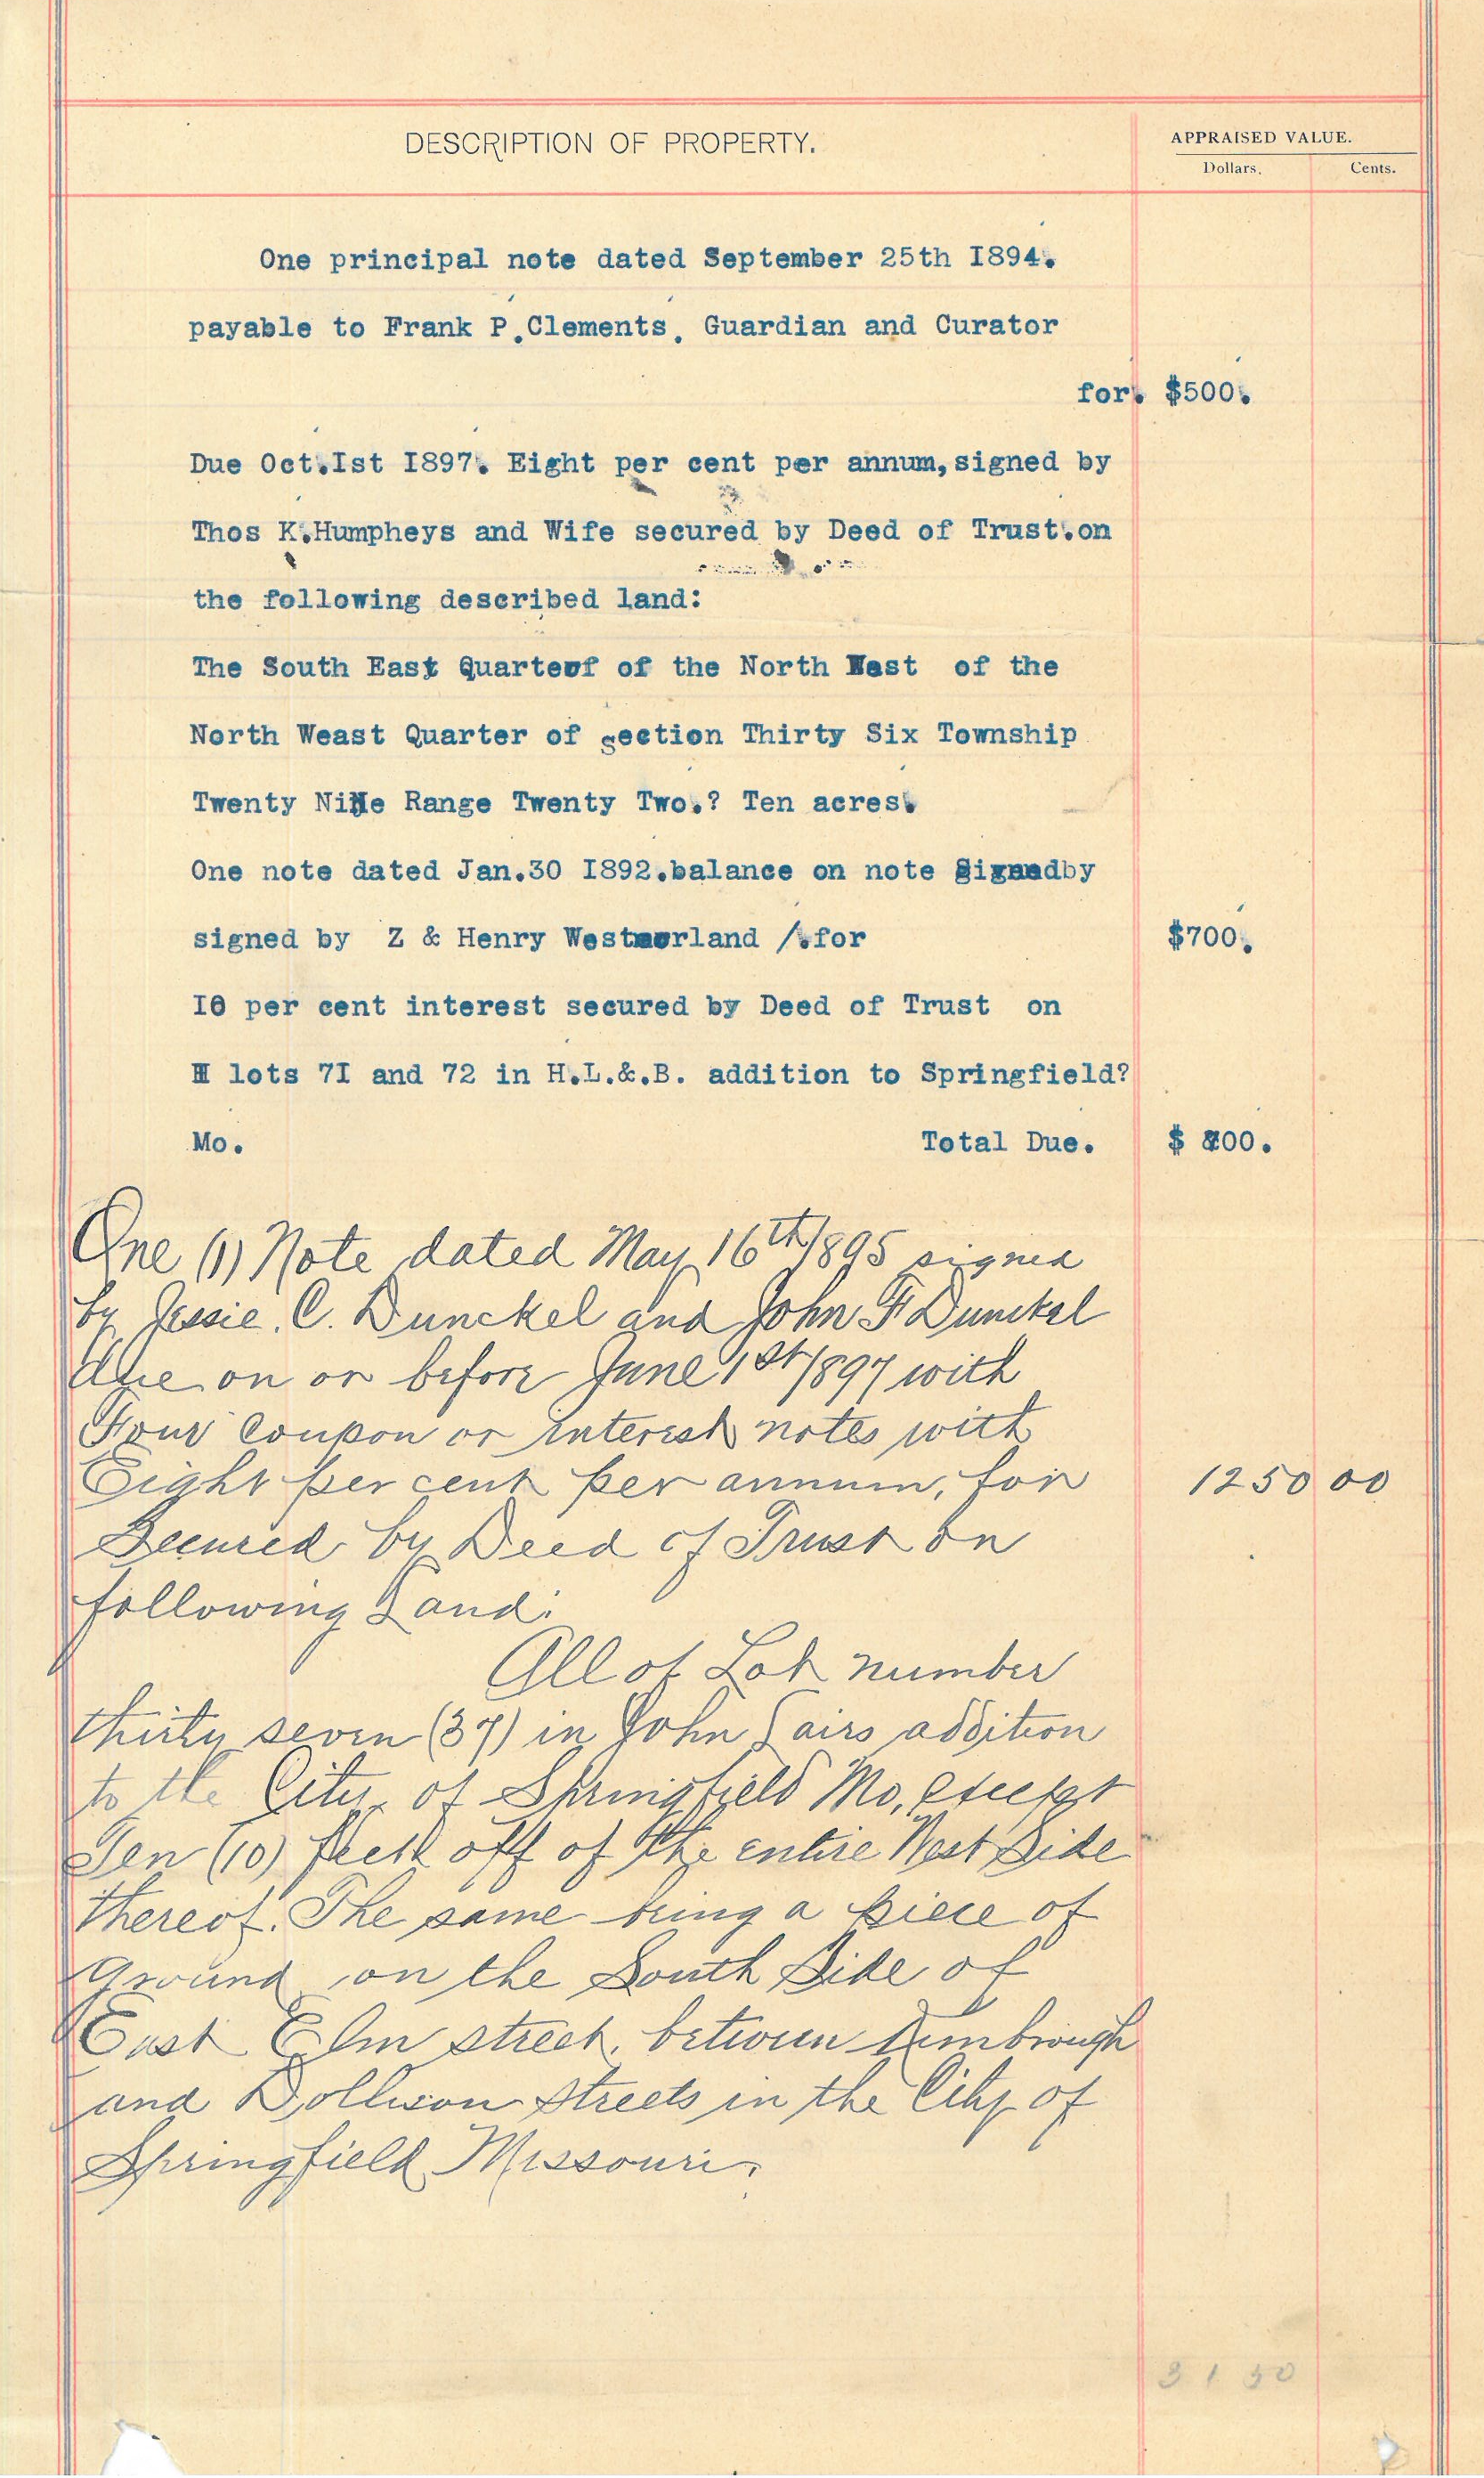 DESCRIPTION OF PROPERTY.
APPRAISED VALUE.
Dollars. Cents.
One principal note dated September 25th I894.
payable to Frank P.Clements. Guardian and Curator
for. $500.
Due Oct.Ist I897. Eight per cent per annum,signed by
Thos K.Humpheys and Wife secured by Deed of Trust.on
the following described land:
The South East Quarter of of the North West of the
North Weast Quarter of section Thirty Six Township
Twenty Nine Range Twenty Two.? Ten acres.
One note dated Jan.30 I892.balance on note Signedby
signed by Z & Henry Westmorland /.for $700.
I0 per cent interest secured by Deed of Trust on
lots 7I and 72 in H.L.&.B. addition to Springfield?
Mo. Total Due. $ 800.
One (1) Note dated May 16th 1895 signed
by Jessie. C. Dunckel and John F Dunckel
due on or before June 1st 1897 with
Four Coupon or interest notes with
Eight per cent per annum, for 1250 00
Secured by Deed of Trust on
following Land:
All of Lot number
thirty seven (37) in John Fairs addition
to the City of Springfield Mo, except
Ten (10) feet off of the entire West Side
thereof. The same being a piece of
Ground on the South Side of
East Elm street, between Kimbrough
and Dollison Streets in the City of
Springfield Missouri.
31 50